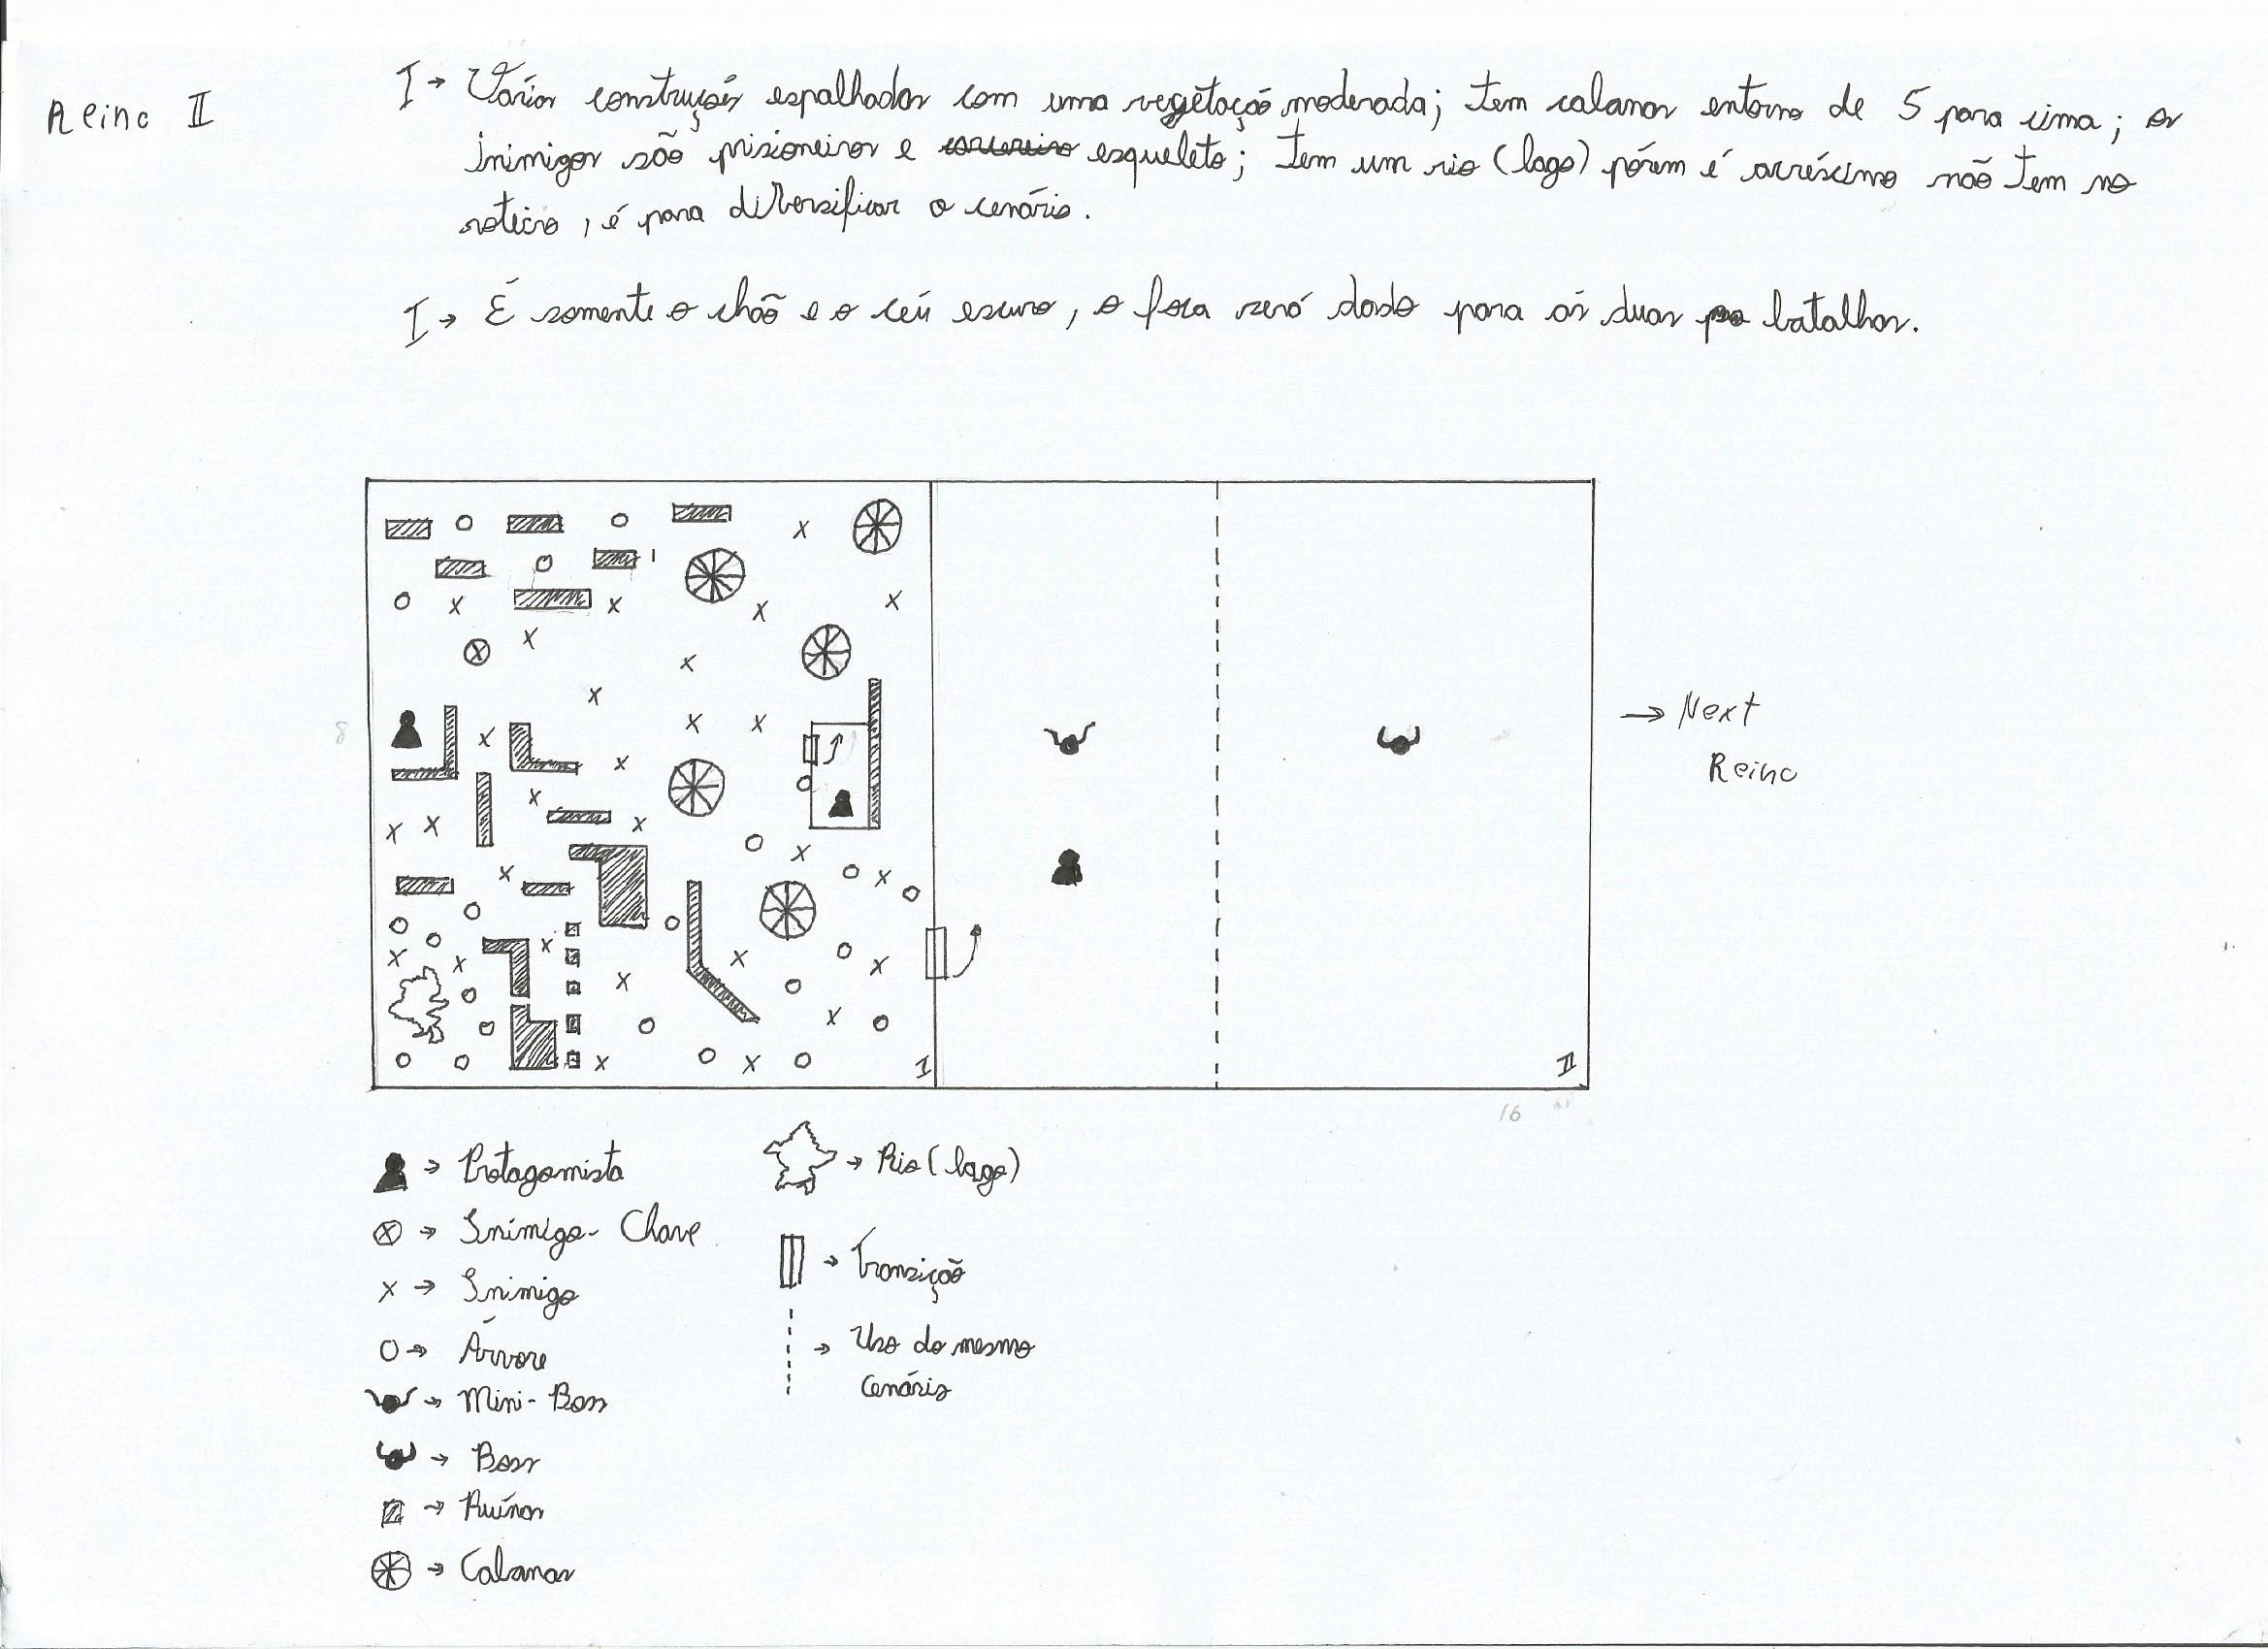 Reino II
I → Várias construções espalhadas com uma vegetação moderada; tem cabanas entorno de 5 para cima; os
inimigos são prisioneiros e carcereiro esqueleto; tem um rio (lago) pórem é acréscimo não tem no
roteiro, é para diversificar o cenário.
I → É somente o chão e o céu escuro, o foco será dado para as duas batalhas.
→ Next
Reino
8
I
II
16
→ Protagonista
→ Inimigo-Chave
X → Inimigo
O → Árvore
→ Mini-Boss
→ Boss
→ Ruínas
→ Cabanas
→ Rio (lago)
→ Transição
→ Uso do mesmo
Cenário